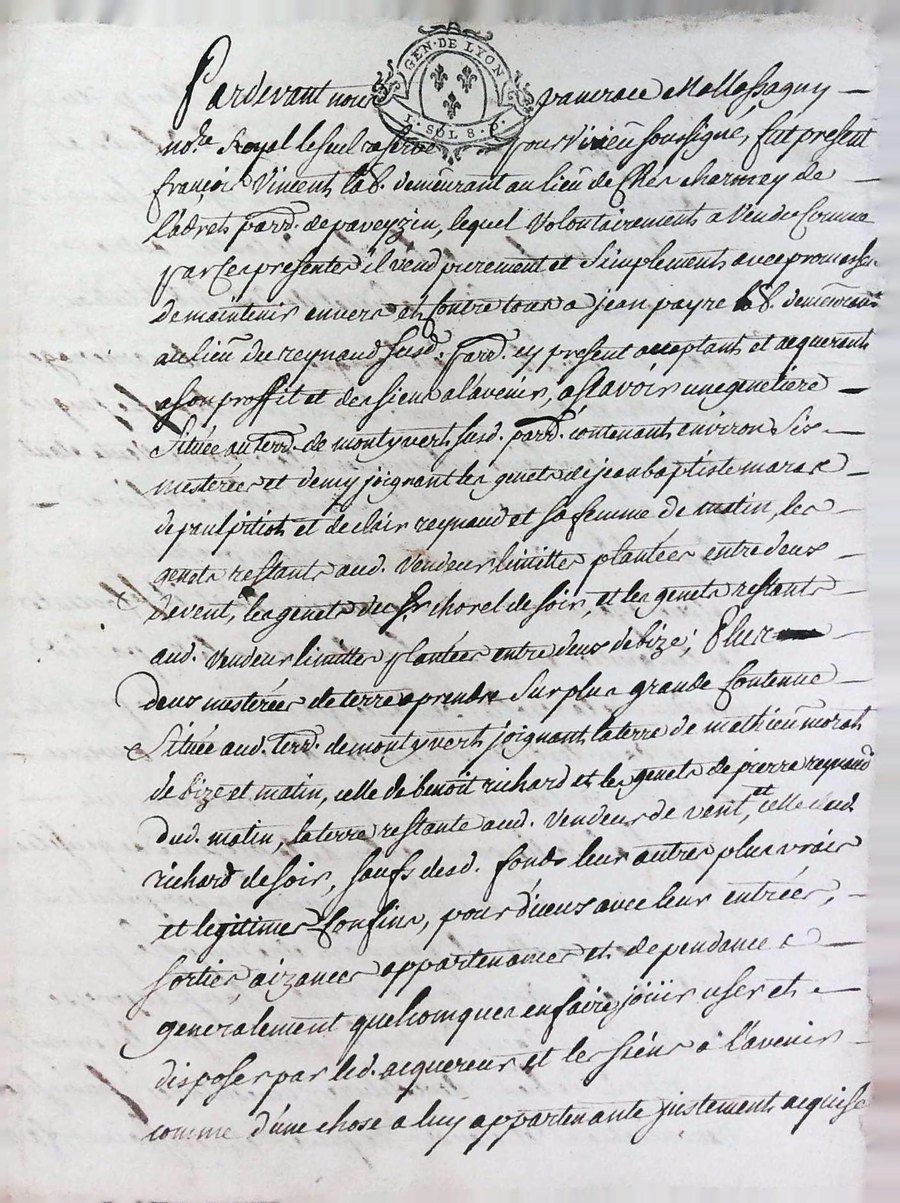 GEN·DE LYON
1·SOL 8·D·
Pardevant nous Mollossaguy
no.re Royal le seul reservé pour Virieu soussigné, fut present
françois Vincent lab. demeurant au lieu de Ches charmey de
l'adrets parr. de paveyzin, lequel Volontairements a Vendu Comme
par Ces presentes il vend purement et Simplements avec promesse
de maintenir envers et Contre tous a jean payre lab. demeurant
au lieu du reynaud susd. parr. cy present acceptants et acquerants
a son proffit et des siens a l'avenir, a scavoir une genetiere
Située au terr. de montyvert susd. parr. contenants environ Six
mesterées et demy joignant les genets de jean baptiste maras
de paul pitiot et de clair reynaud et sa femme de matin, les
genets restants aud. Vendeur limittes plantées entre deux
de vent, les genets du Sr. chorel de soir, et les genets restants
aud. Vendeur limittes plantées entre deux de bize; Plus
deux mesterées de terre a prendre Sur plus grande Contenue
Située aud. terr. de montyvert joignant la terre de mathieu morat
de bize et matin, celle de benoit richard et les genets de pierre reynaud
dud. matin, la terre restante aud. Vendeur de vent, et celle dud.
richard de soir, saufs desd. fonds leur autres plus vrais
et legitimes Confins, pour d'iceux avec leur entrées,
sorties, aizances appartenances et dependances
generalement quelconques en faire joüir user et
disposer par led. acquereur et les siens a l'avenir
comme d'une chose a luy appartenante justement acquise